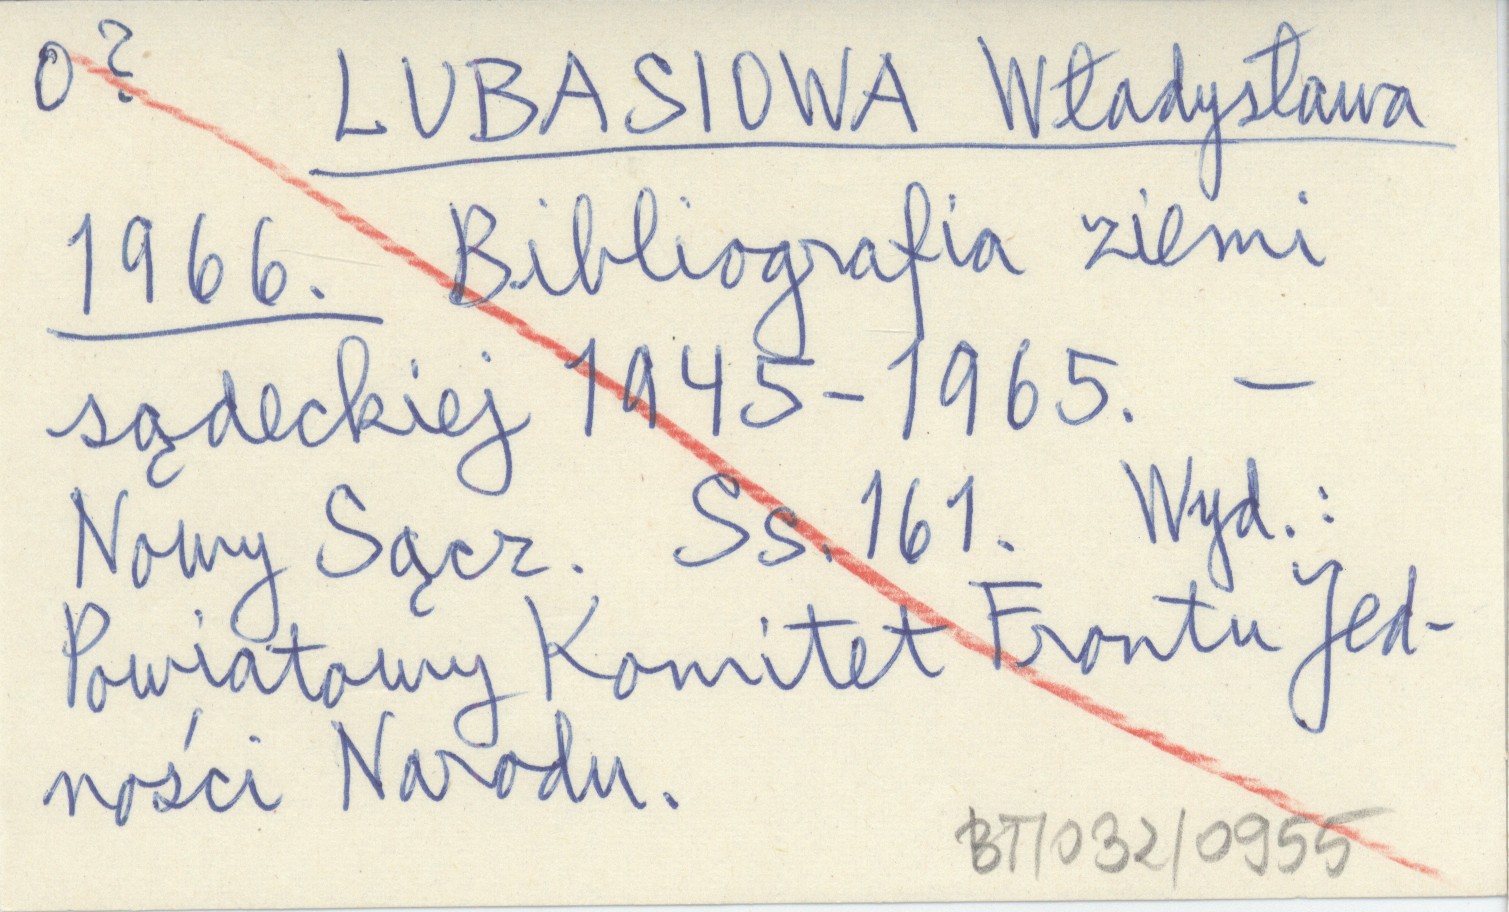 0? LUBASIOWA Władysława
1966. Bibliografia ziemi
sądeckiej 1945-1965. –
Nowy Sącz. Ss. 161. Wyd.:
Powiatowy Komitet Frontu Jed-
ności Narodu.
BT/032/0955